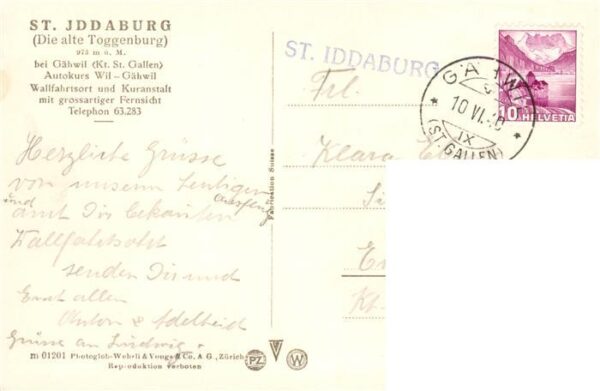 ST. JDDABURG
(Die alte Toggenburg)
975 m ü. M.
bei Gähwil (Kt. St. Gallen)
Autokurs Wil – Gähwil
Wallfahrtsort und Kuranstalt
mit grossartiger Fernsicht
Telephon 63.283
ST. IDDABURG
10
HELVETIA
10 VI.
IX
(ST. GALLEN)
Frl.
Klara
Kt.
Herzliche Grüsse
von unserm heutigen
Ausflug
und
Dir bekannten
Wallfahrtsort
senden Dir und
Euch allen
Anton & Adelheid
Grüsse an Ludwig
Fabrication Suisse
m 01201 Photoglob-Wehrli & Vouga & Co. A G., Zürich
Reproduktion verboten
PZ
V
W